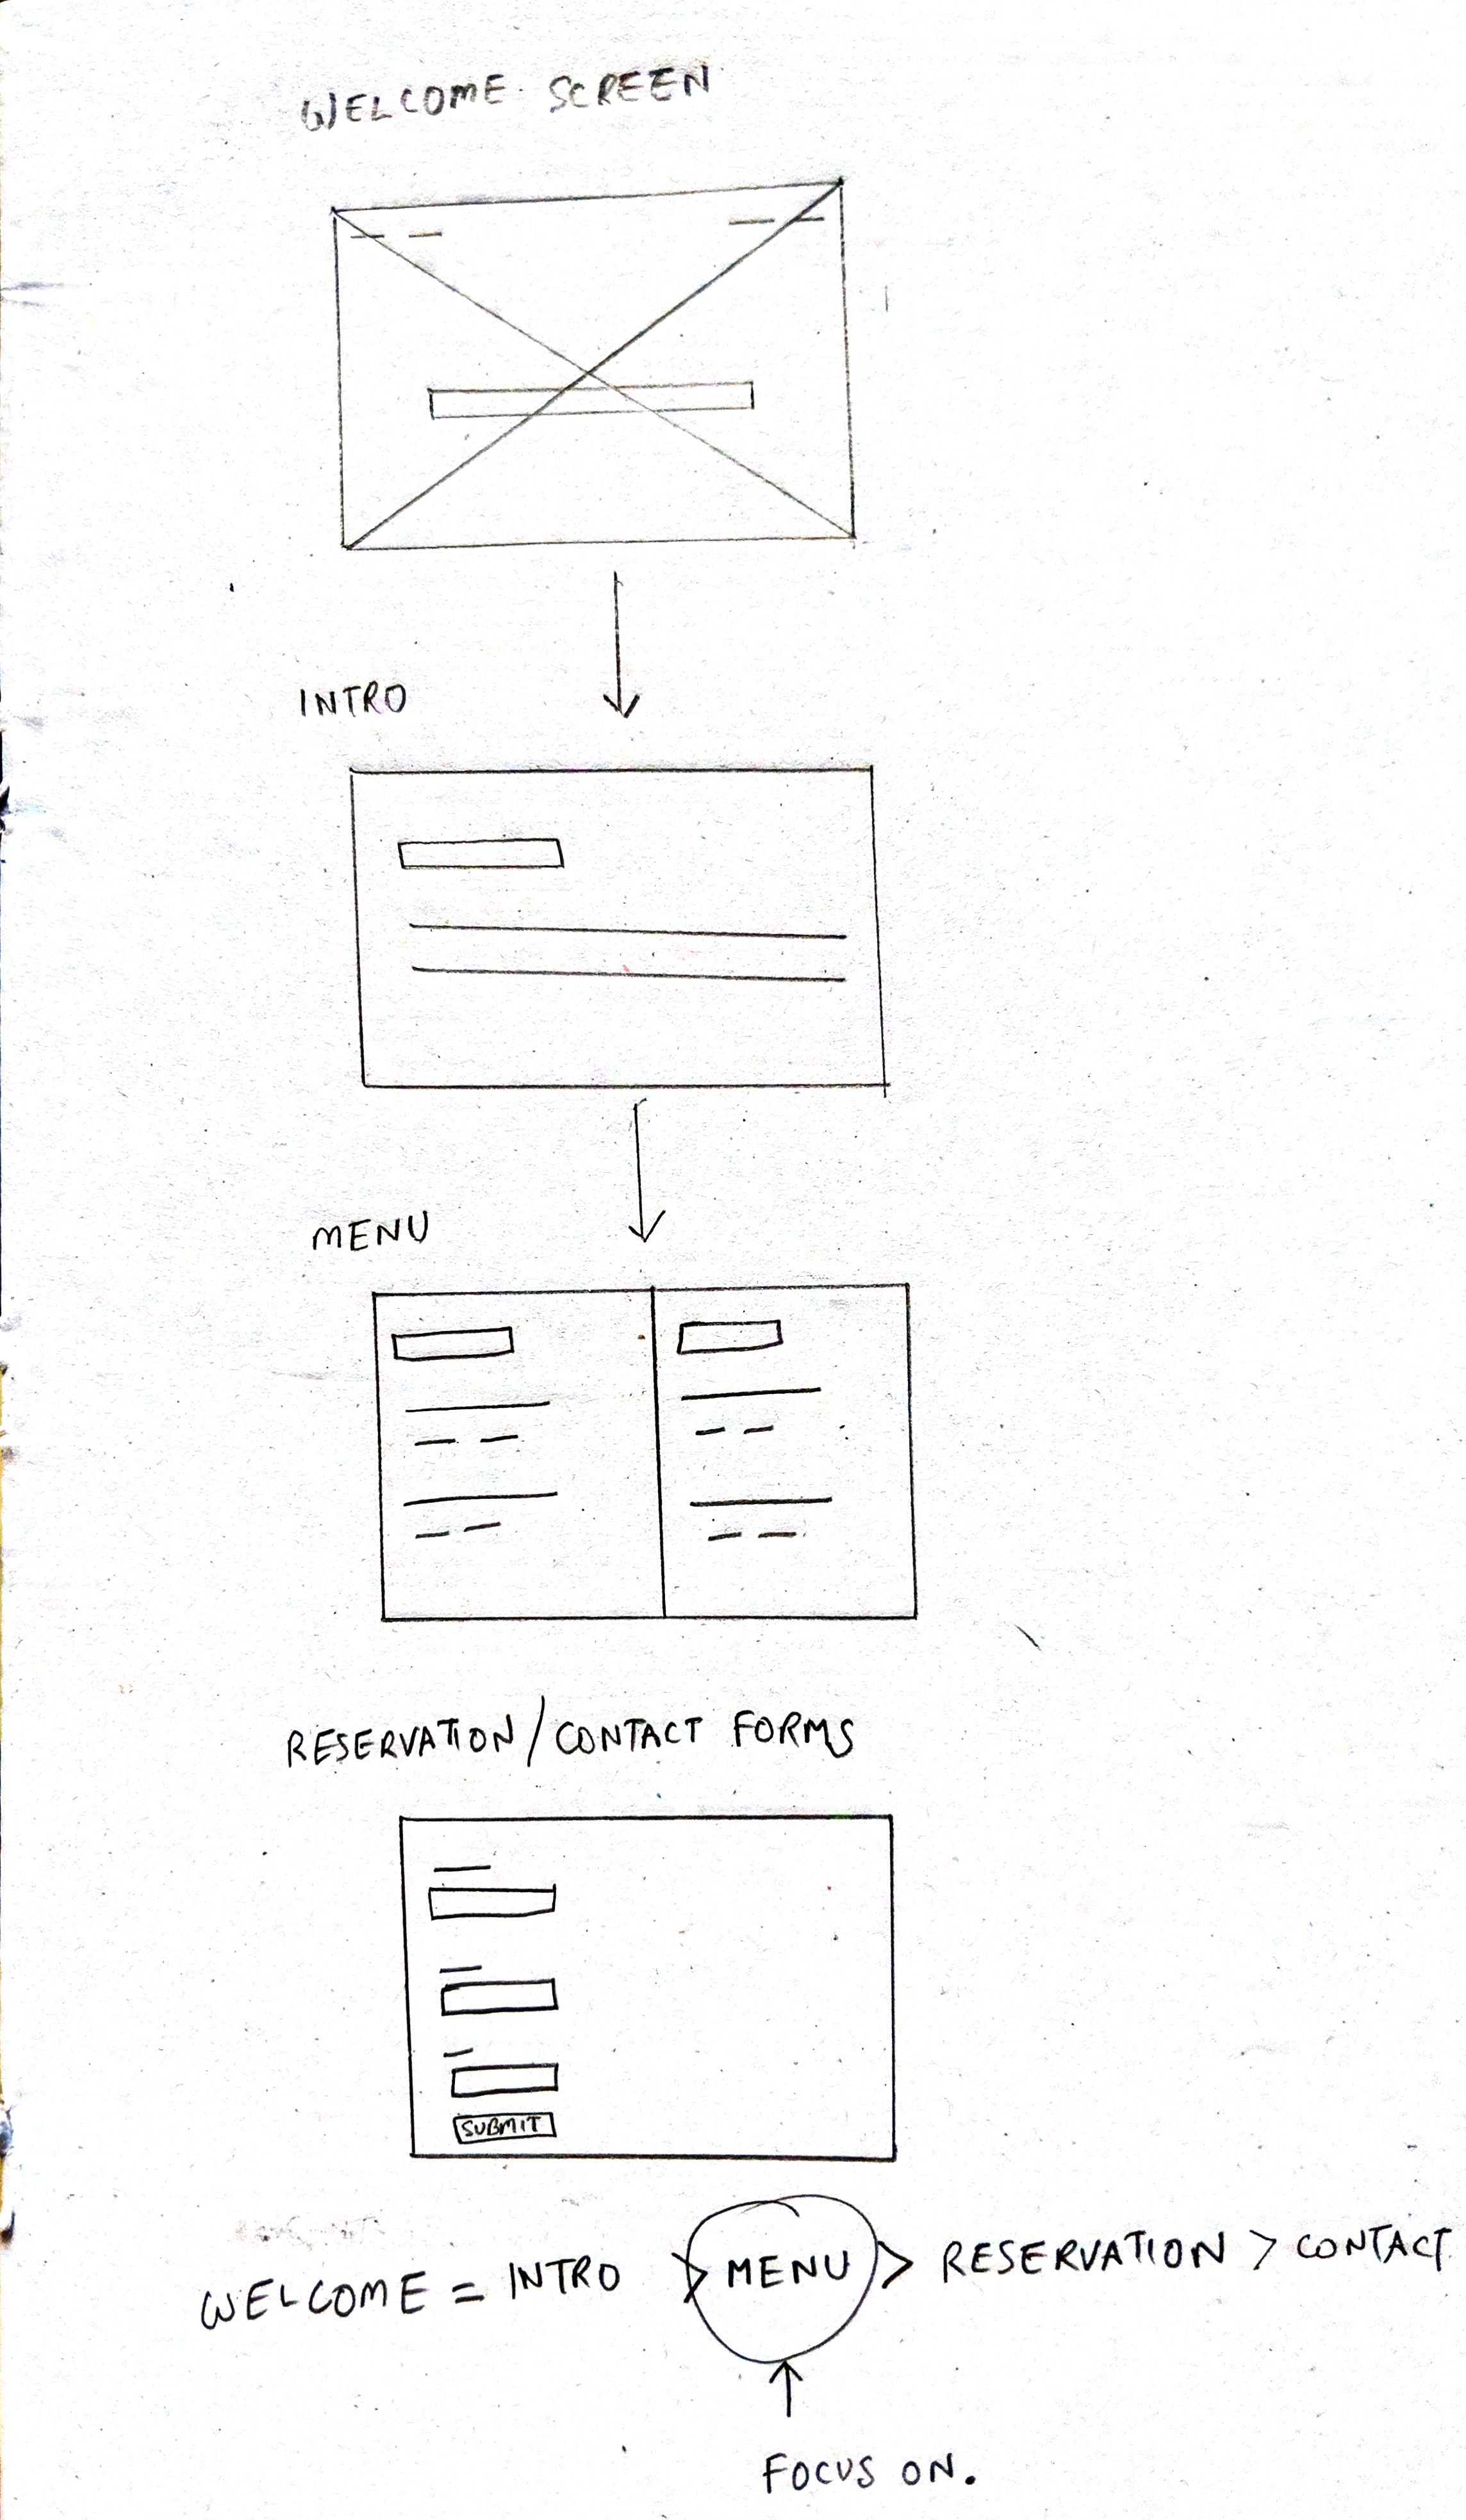 WELCOME SCREEN
INTRO
MENU
RESERVATION/CONTACT FORMS
SUBMIT
WELCOME = INTRO > MENU > RESERVATION > CONTACT
FOCUS ON.